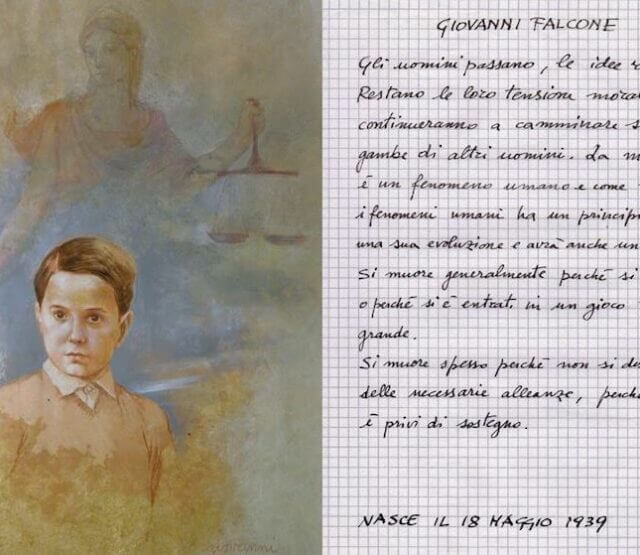 GIOVANNI FALCONE
Gli uomini passano, le idee
Restano le loro tensioni
continueranno a camminare
gambe di altri uomini. La
è un fenomeno umano e come
i fenomeni umani ha un
una sua evoluzione e avrà anche
Si muore generalmente perché si
o perché si è entrati in un gioco
grande.
Si muore spesso perché non si
delle necessarie alleanze,
è privi di sostegno.
NASCE IL 18 MAGGIO 1939
giovanni